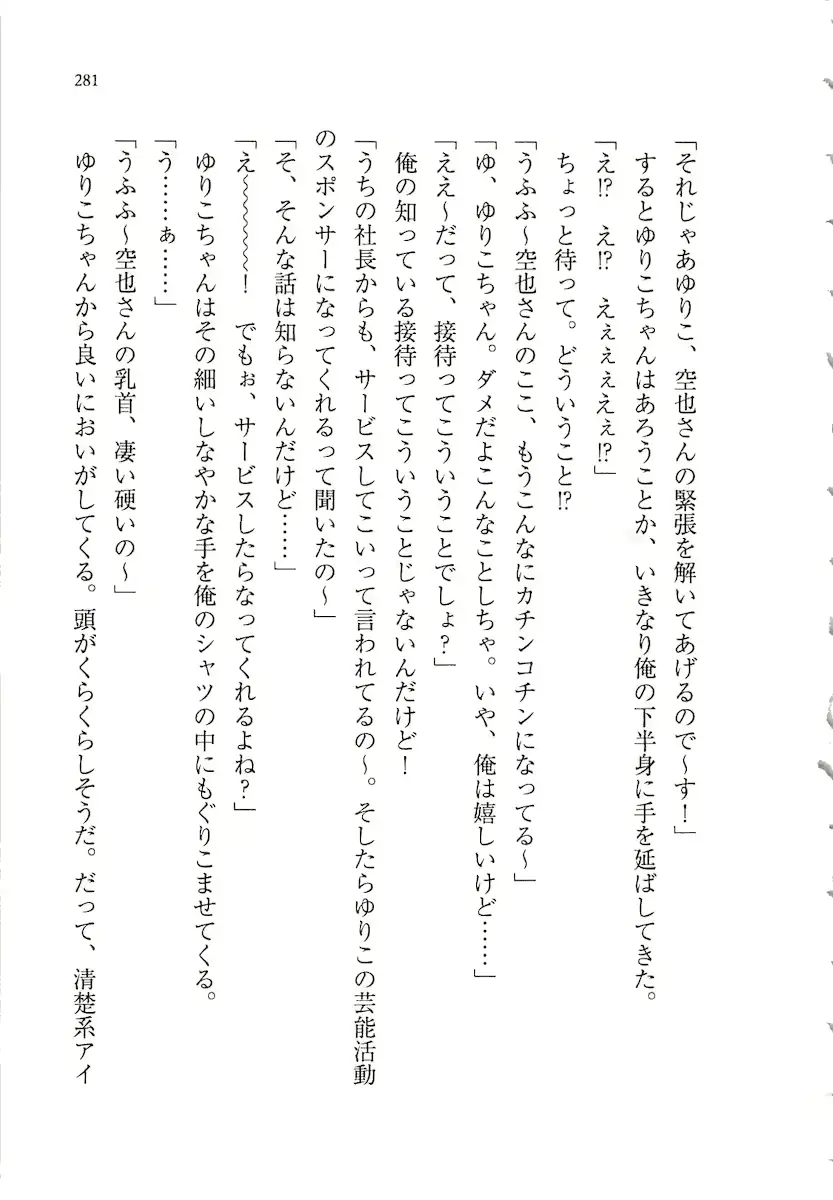 281
「それじゃあゆりこ、空也さんの緊張を解いてあげるので～す！」
するとゆりこちゃんはあろうことか、いきなり俺の下半身に手を延ばしてきた。
「え⁉　え⁉　えぇぇぇえぇ⁉」
ちょっと待って。どういうこと⁉
「うふふ～空也さんのここ、もうこんなにカチンコチンになってる～」
「ゆ、ゆりこちゃん。ダメだよこんなことしちゃ。いや、俺は嬉しいけど……」
「ええ～だって、接待ってこういうことでしょ？」
俺の知っている接待ってこういうことじゃないんだけど！
「うちの社長からも、サービスしてこいって言われてるの～。そしたらゆりこの芸能活動
のスポンサーになってくれるって聞いたの～」
「そ、そんな話は知らないんだけど……」
「え～～～～～～！　でもぉ、サービスしたらなってくれるよね？」
ゆりこちゃんはその細いしなやかな手を俺のシャツの中にもぐりこませてくる。
「う……ぁ……」
「うふふ～空也さんの乳首、凄い硬いの～」
ゆりこちゃんから良いにおいがしてくる。頭がくらくらしそうだ。だって、清楚系アイ